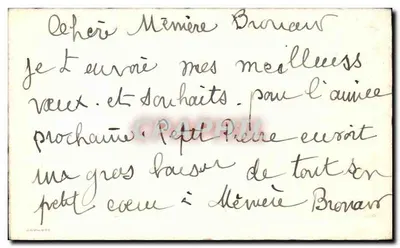 Chère Mémère Bronaw
Je t envoie mes meilleurs
vœux. et souhaits. pour l'année
prochaine. Petit Pierre envoit
un gros baiser de tout son
petit cœur à Mémère Bronaw